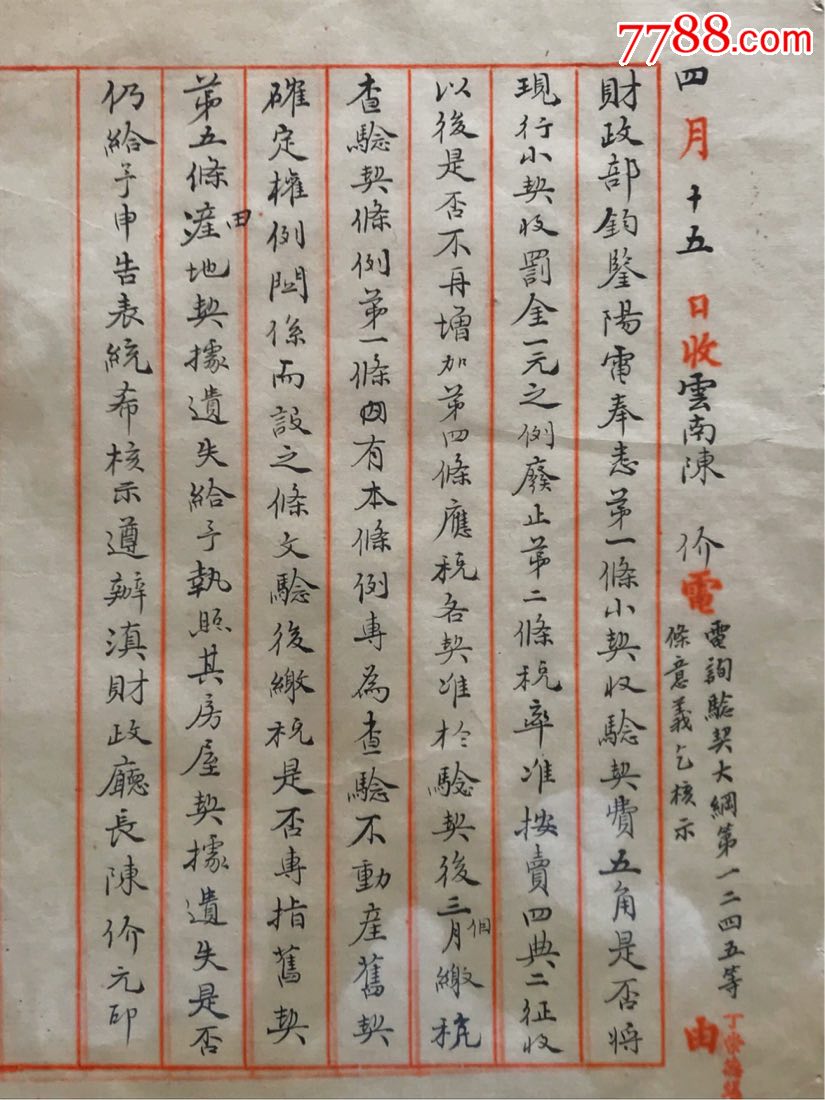 7788.com
四月十五日收雲南陳价電
電詢驗契大綱第一二四五等
條意義乞核示
由
財政部鈞鑒陽電奉悉第一條小契收驗契費五角是否將
現行小契收罰金一元之例廢止第二條稅率准按賣四典二征收
以後是否不再增加第四條應稅各契准於驗契後三個月繳稅
查驗契條例第一條內有本條例專為查驗不動產舊契
確定權例關係而設之條文驗後繳稅是否專指舊契
第五條田產地契據遺失給予執照其房屋契據遺失是否
仍給予申告表統希核示遵辦滇財政廳長陳价元印